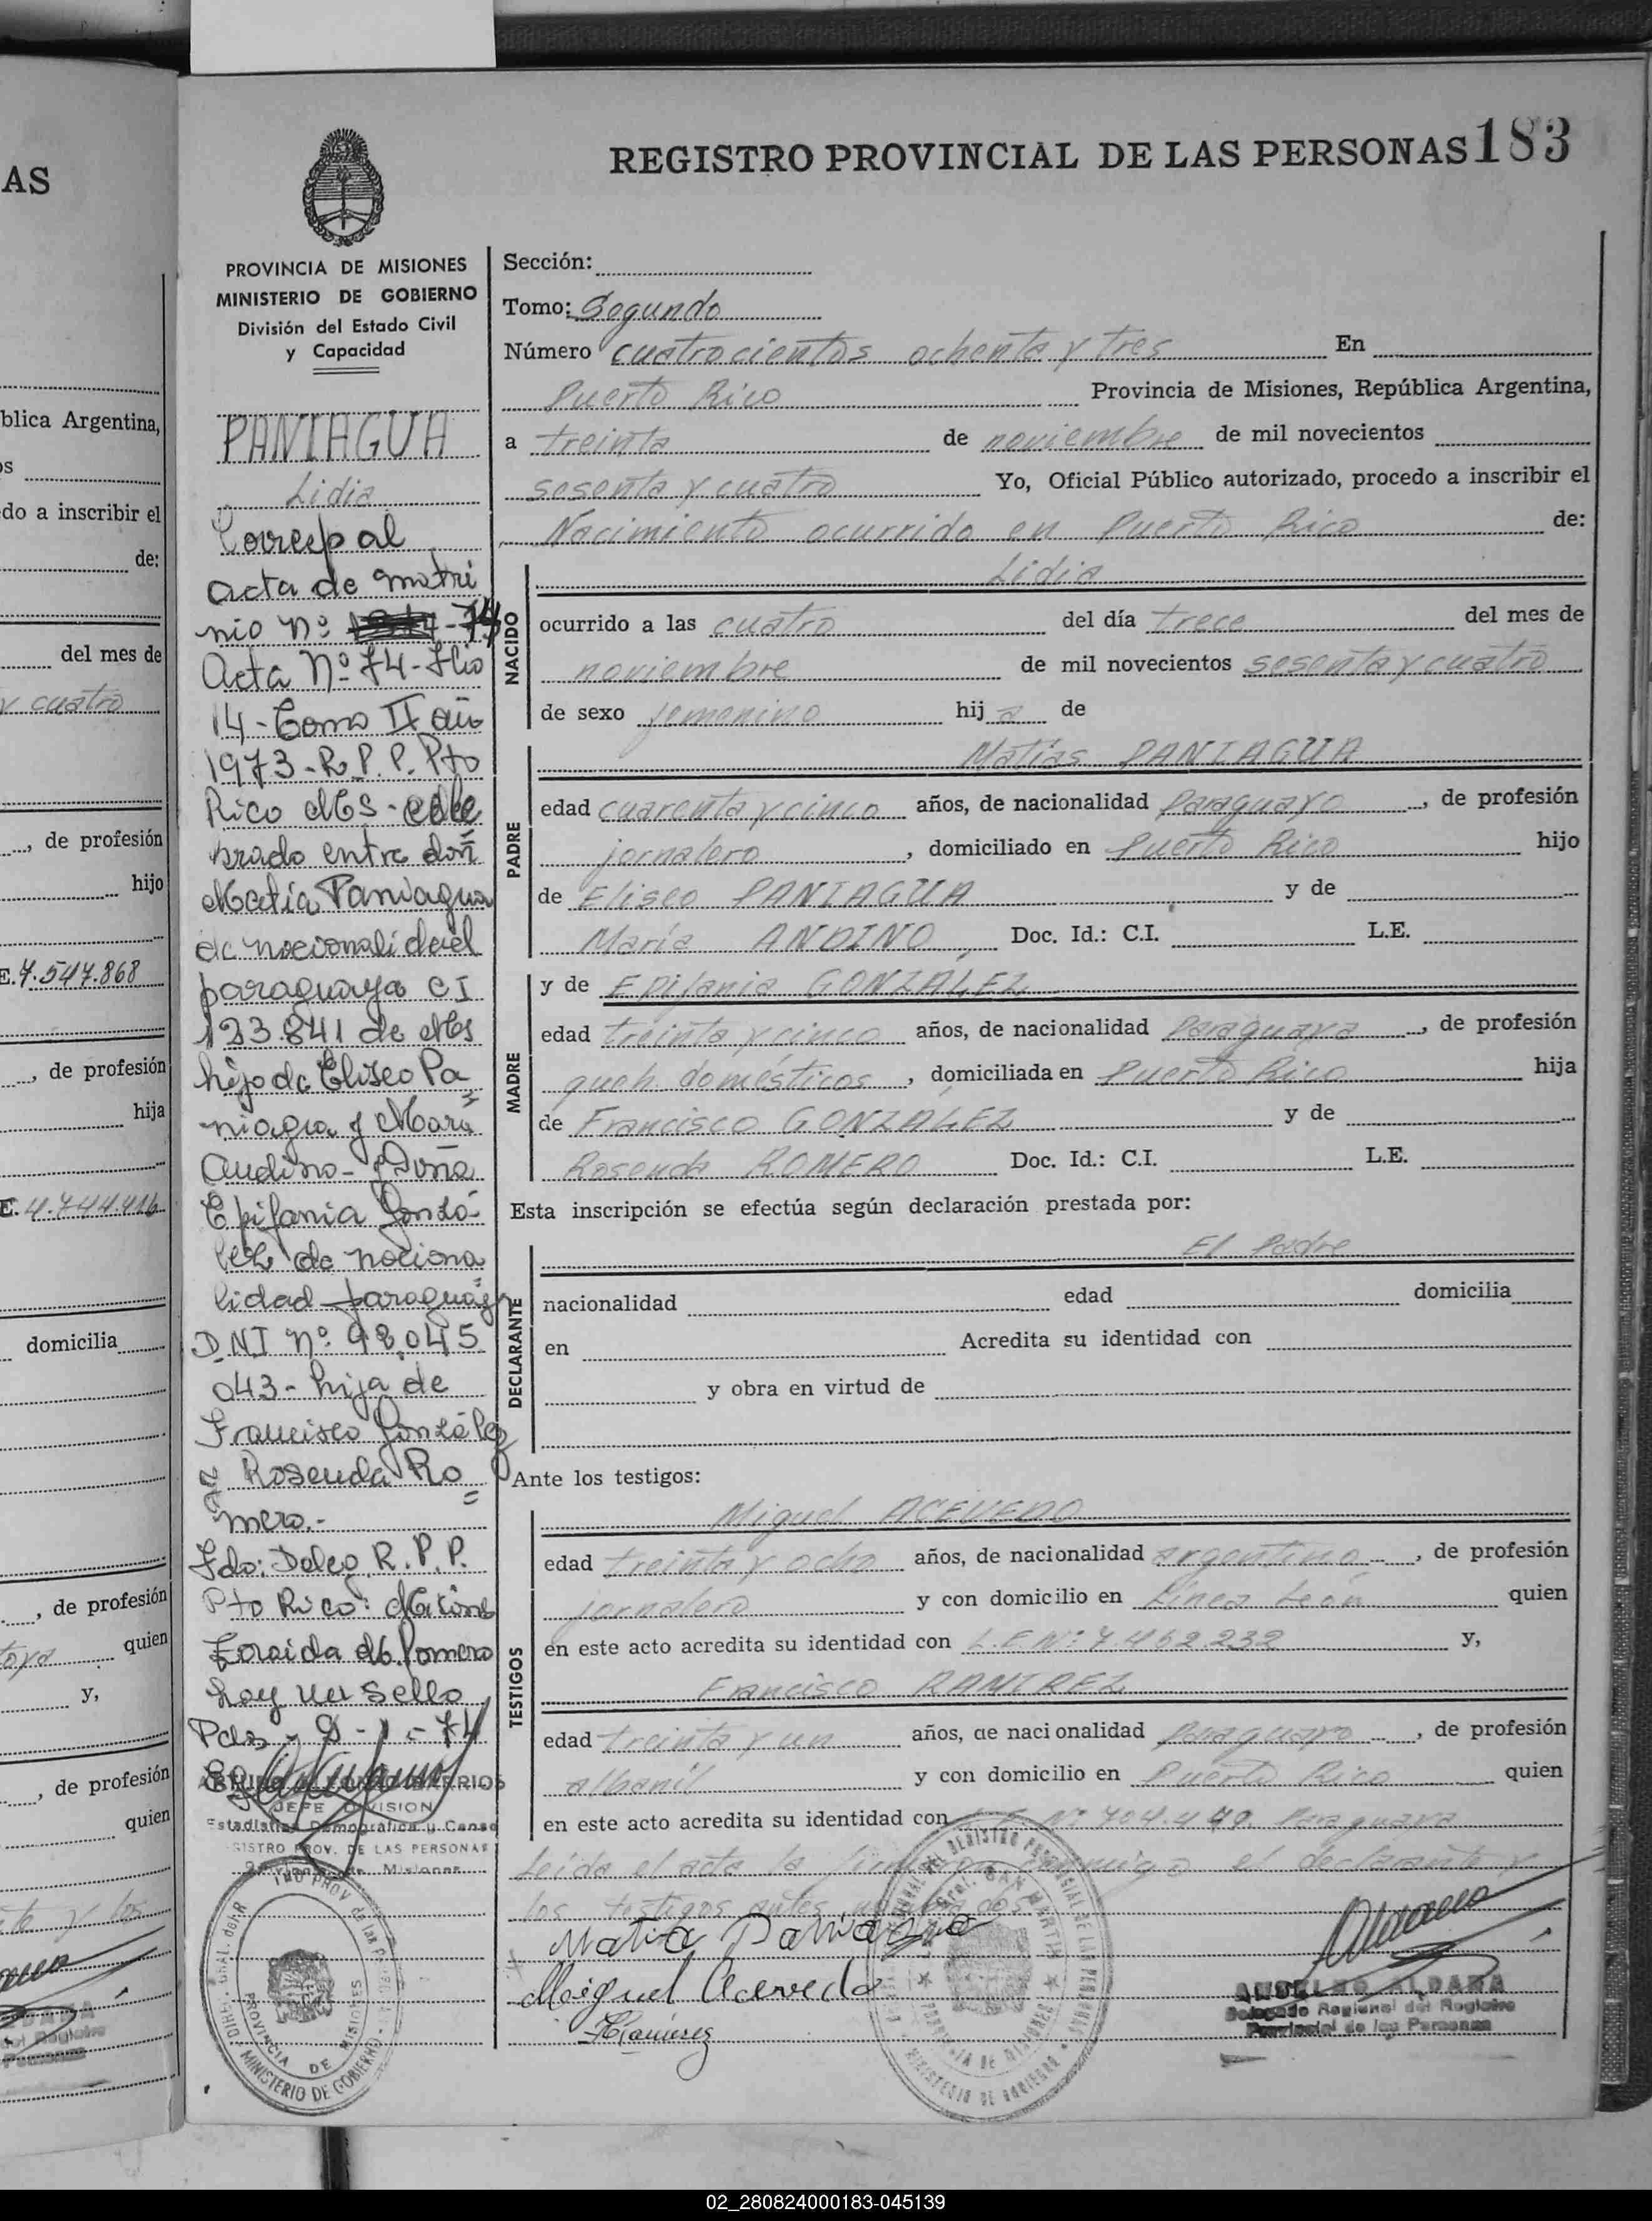 AS
blica Argentina,
os
do a inscribir el
de:
del mes de
y cuatro
, de profesión
hijo
E. 7.547.868
, de profesión
hija
E. 4.744.416
domicilia
, de profesión
quien
y,
, de profesión
quien
REGISTRO PROVINCIAL DE LAS PERSONAS 183
PROVINCIA DE MISIONES
MINISTERIO DE GOBIERNO
División del Estado Civil
y Capacidad
PANIAGUA
Lidia
Corresp al
acta de matri
nio Nº
Acta Nº 74 - Flio
14 - Tomo II año
1973 - R.P.P. Pto
Rico Mes - cele
brado entre don
Matía Paniagua
de nacionalidad
paraguaya CI
123.841 de Mes
hijo de Eliseo Pa
niagua y María
Andino - y Doña
Epifania Gonzá-
lez de naciona
lidad paraguaya
DNI Nº 92.045
043 - hija de
Francisco González
Rosenda Ro
mero.-
Fdo: Deleg. R.P.P.
Pto Rico:
Zoraida M. Romero
hay un sello
Pdas - 9 - 1 - 74
BARRIOS
JEFE DIVISION
Estadística Demográfica y Censo
REGISTRO PROV. DE LAS PERSONAS
Misiones
DIRC. GRAL. del R
PROV de las P
PROVINCIA DE MISIONES
MINISTERIO DE GOBIERNO
Sección:
Tomo: Segundo
Número cuatrocientos ochenta y tres En
Puerto Rico Provincia de Misiones, República Argentina,
a treinta de noviembre de mil novecientos
sesenta y cuatro Yo, Oficial Público autorizado, procedo a inscribir el
Nacimiento ocurrido en Puerto Rico de:
NACIDO
Lidia
ocurrido a las cuatro del día trece del mes de
noviembre de mil novecientos sesenta y cuatro
de sexo femenino hij a de
PADRE
Matías PANIAGUA
edad cuarenta y cinco años, de nacionalidad Paraguayo, de profesión
jornalero, domiciliado en Puerto Rico hijo
de Eliseo PANIAGUA y de
María ANDINO, Doc. Id.: C.I. L.E.
MADRE
y de Epifania GONZALEZ
edad treinta y cinco años, de nacionalidad Paraguaya, de profesión
queh. domésticos, domiciliada en Puerto Rico hija
de Francisco GONZALEZ y de
Rosenda ROMERO Doc. Id.: C.I. L.E.
Esta inscripción se efectúa según declaración prestada por:
DECLARANTE
El Padre
nacionalidad edad domicilia
en Acredita su identidad con
y obra en virtud de
Ante los testigos:
TESTIGOS
Miguel ACEVEDO
edad treinta y ocho años, de nacionalidad argentino, de profesión
jornalero y con domicilio en Línea León quien
en este acto acredita su identidad con L.E.Nº 7.462.232 y,
Francisco RAMIREZ
edad treinta y un años, de nacionalidad Paraguayo, de profesión
albañil y con domicilio en Puerto Rico quien
en este acto acredita su identidad con Nº 704.449. Paraguaya
Leida el acta la firmaron conmigo el declarante y
los testigos antes
Matia Paniagua
Miguel Acevedo
Ramirez
Gral. SAN MARTIN
PROVINCIA DE MISIONES
MINISTERIO DE GOBIERNO
ANSELMO ALDANA
Delegado Regional del Registro
Provincial de las Personas
02_280824000183-045139